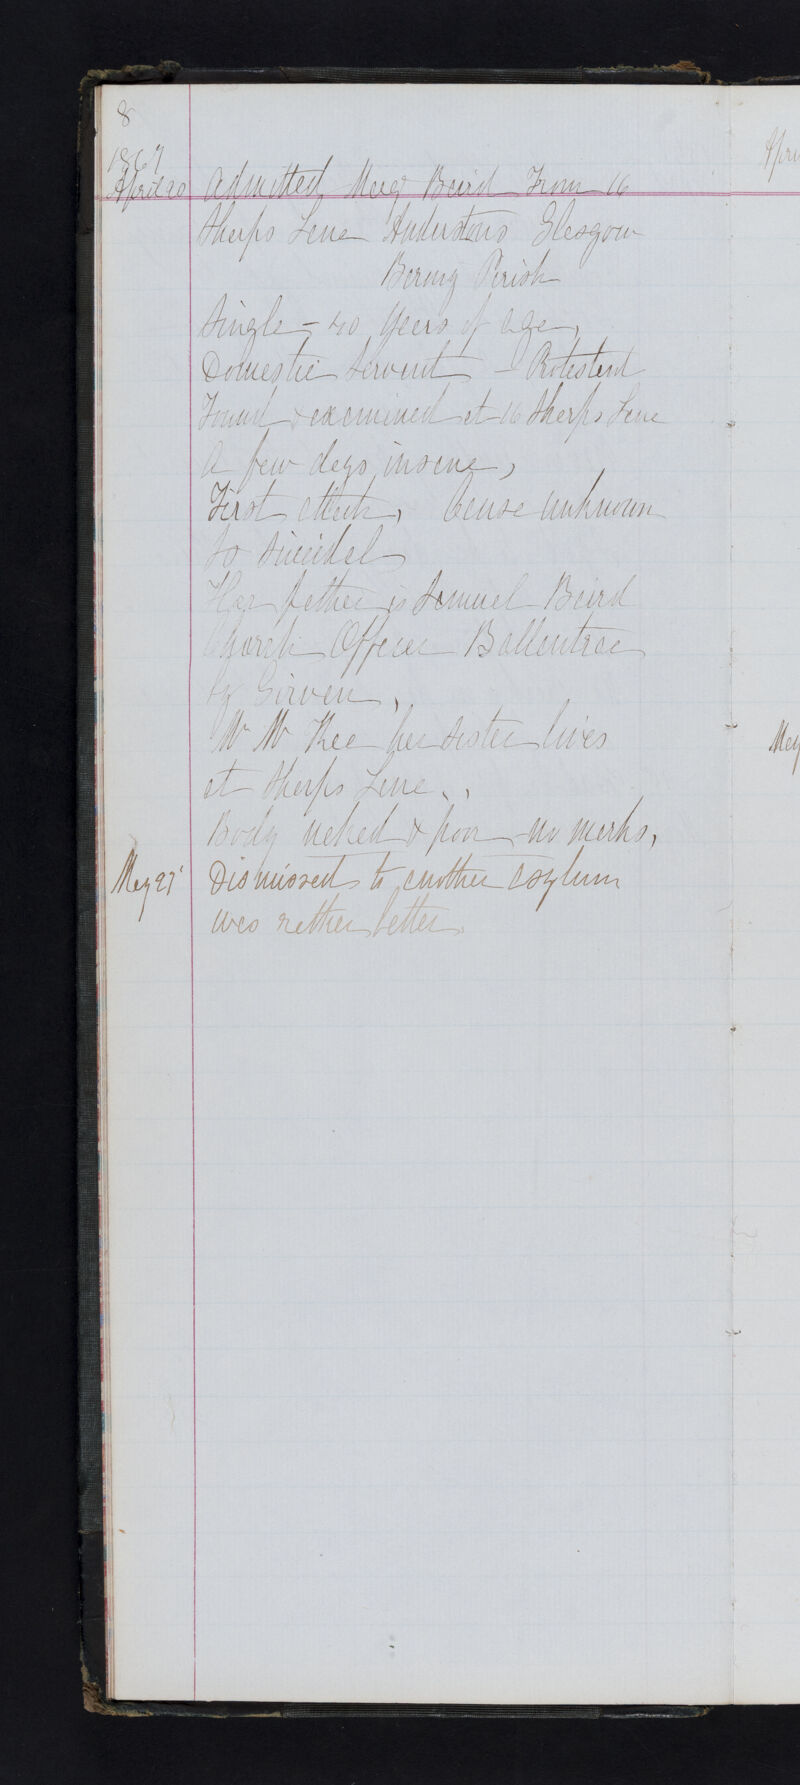 8
1867
April 20 Admitted Mary Baird From 16
Sharps Lane Anderston Glasgow
Barony Parish
Single - 40 years of age,
Domestic Servant - Protestant
Found & examined at 16 Sharps Lane
A few days insane,
First attack, Cause unknown
Is Suicidal
Her father is Samuel Baird
Church Officer Ballantrae
by Girvan,
Mr Mc Kee her sister lives
at Sharps Lane,
Body naked & poor no marks,
May 27 Dismissed to another asylum
was rather better